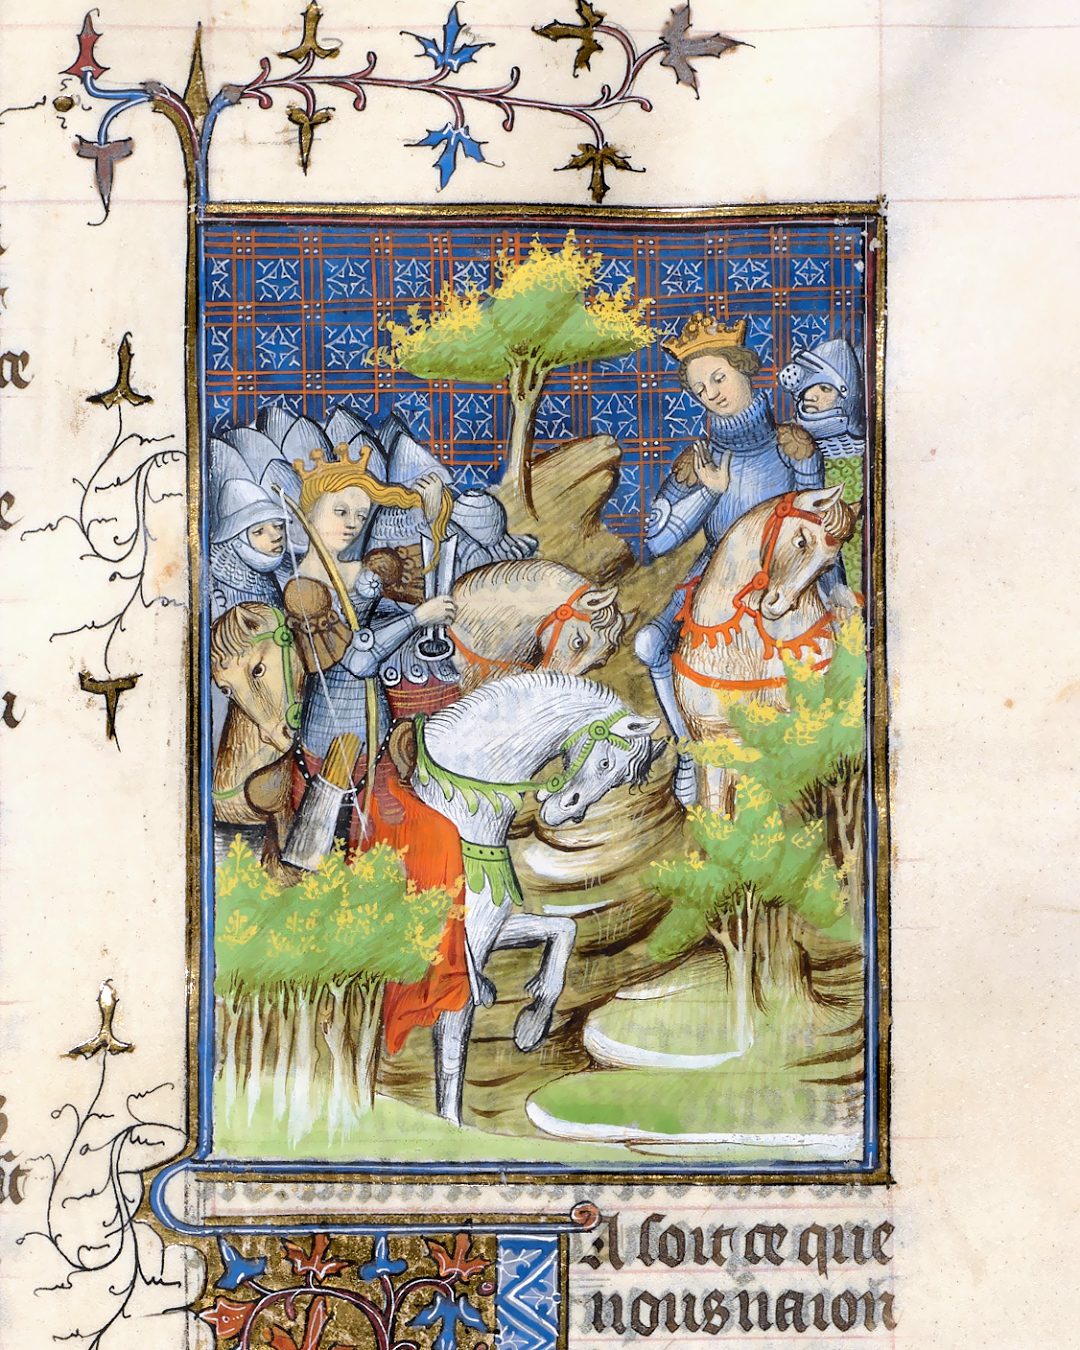 A soit ce que
nous naion